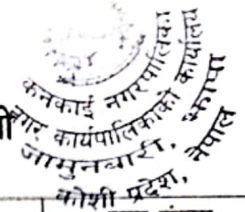 कनकाई नगरपालिका
नगर कार्यपालिकाको कार्यालय
जामुनबारी, झापा
कोशी प्रदेश, नेपाल